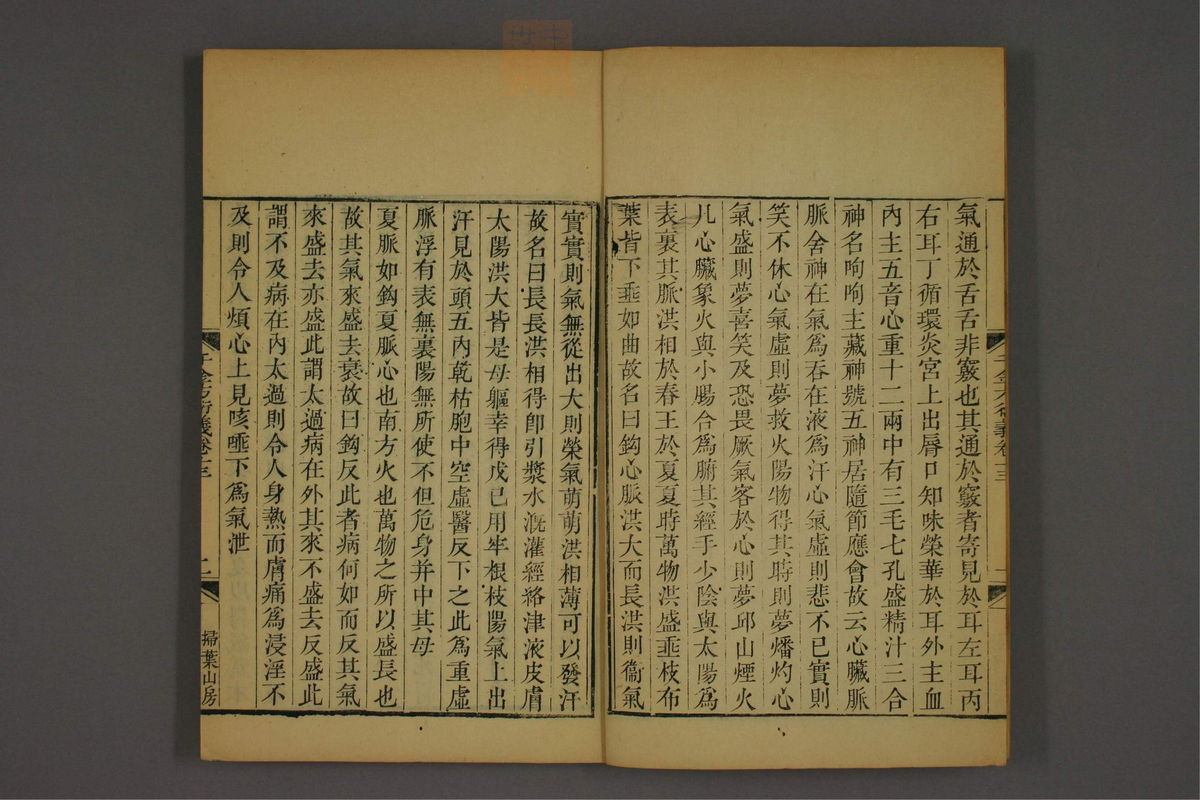 氣通於舌舌非竅也其通於竅者寄見於耳左耳丙
右耳丁循環炎宮上出脣口知味榮華於耳外主血
內主五音心重十二兩中有三毛七孔盛精汁三合
神名呴呴主藏神號五神居隨節應會故云心臟脈
脈舍神在氣爲吞在液爲汗心氣虛則悲不已實則
笑不休心氣虛則夢救火陽物得其時則夢燔灼心
氣盛則夢喜笑及恐畏厥氣客於心則夢邱山煙火
凡心臟象火與小腸合爲腑其經手少陰與太陽爲
表裏其脈洪相於春王於夏夏時萬物洪盛垂枝布
葉皆下垂如曲故名曰鈎心脈洪大而長洪則衞氣
實實則氣無從出大則榮氣萌萌洪相薄可以發汗
故名曰長長洪相得卽引漿水漑灌經絡津液皮膚
太陽洪大皆是母軀幸得戊已用牢根枝陽氣上出
汗見於頭五內乾枯胞中空虛醫反下之此爲重虛
脈浮有表無裏陽無所使不但危身并中其母
夏脈如鈎夏脈心也南方火也萬物之所以盛長也
故其氣來盛去衰故曰鈎反此者病何如而反其氣
來盛去亦盛此謂太過病在外其來不盛去反盛此
謂不及病在內太過則令人身熱而膚痛爲浸淫不
及則令人煩心上見咳唾下爲氣泄
千金方衍義卷十三
二
掃葉山房